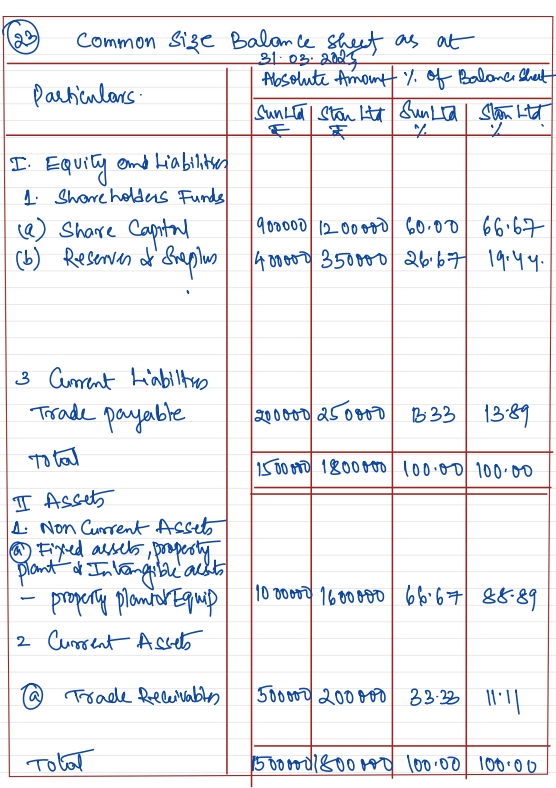 (23) Common Size Balance sheet, as at
31.03.2025
Particulars. Absolute Amount % of Balance Sheet
Sun Ltd Star Ltd Sun Ltd Star Ltd.
₹ ₹ % %
I. Equity and Liabilities
1. Shareholders Funds
(a) Share Capital 900000 1200000 60.00 66.67
(b) Reserves & Surplus 400000 350000 26.67 19.44.
3 Current Liabilities
Trade payable 200000 250000 13.33 13.89
Total 1500000 1800000 100.00 100.00
II Assets
1. Non Current Assets
(a) Fixed assets, property
plant & Intangible assets
- property plant & Equip 1000000 1600000 66.67 88.89
2 Current Assets
(a) Trade Receivables 500000 200000 33.33 11.11
Total 1500000 1800000 100.00 100.00